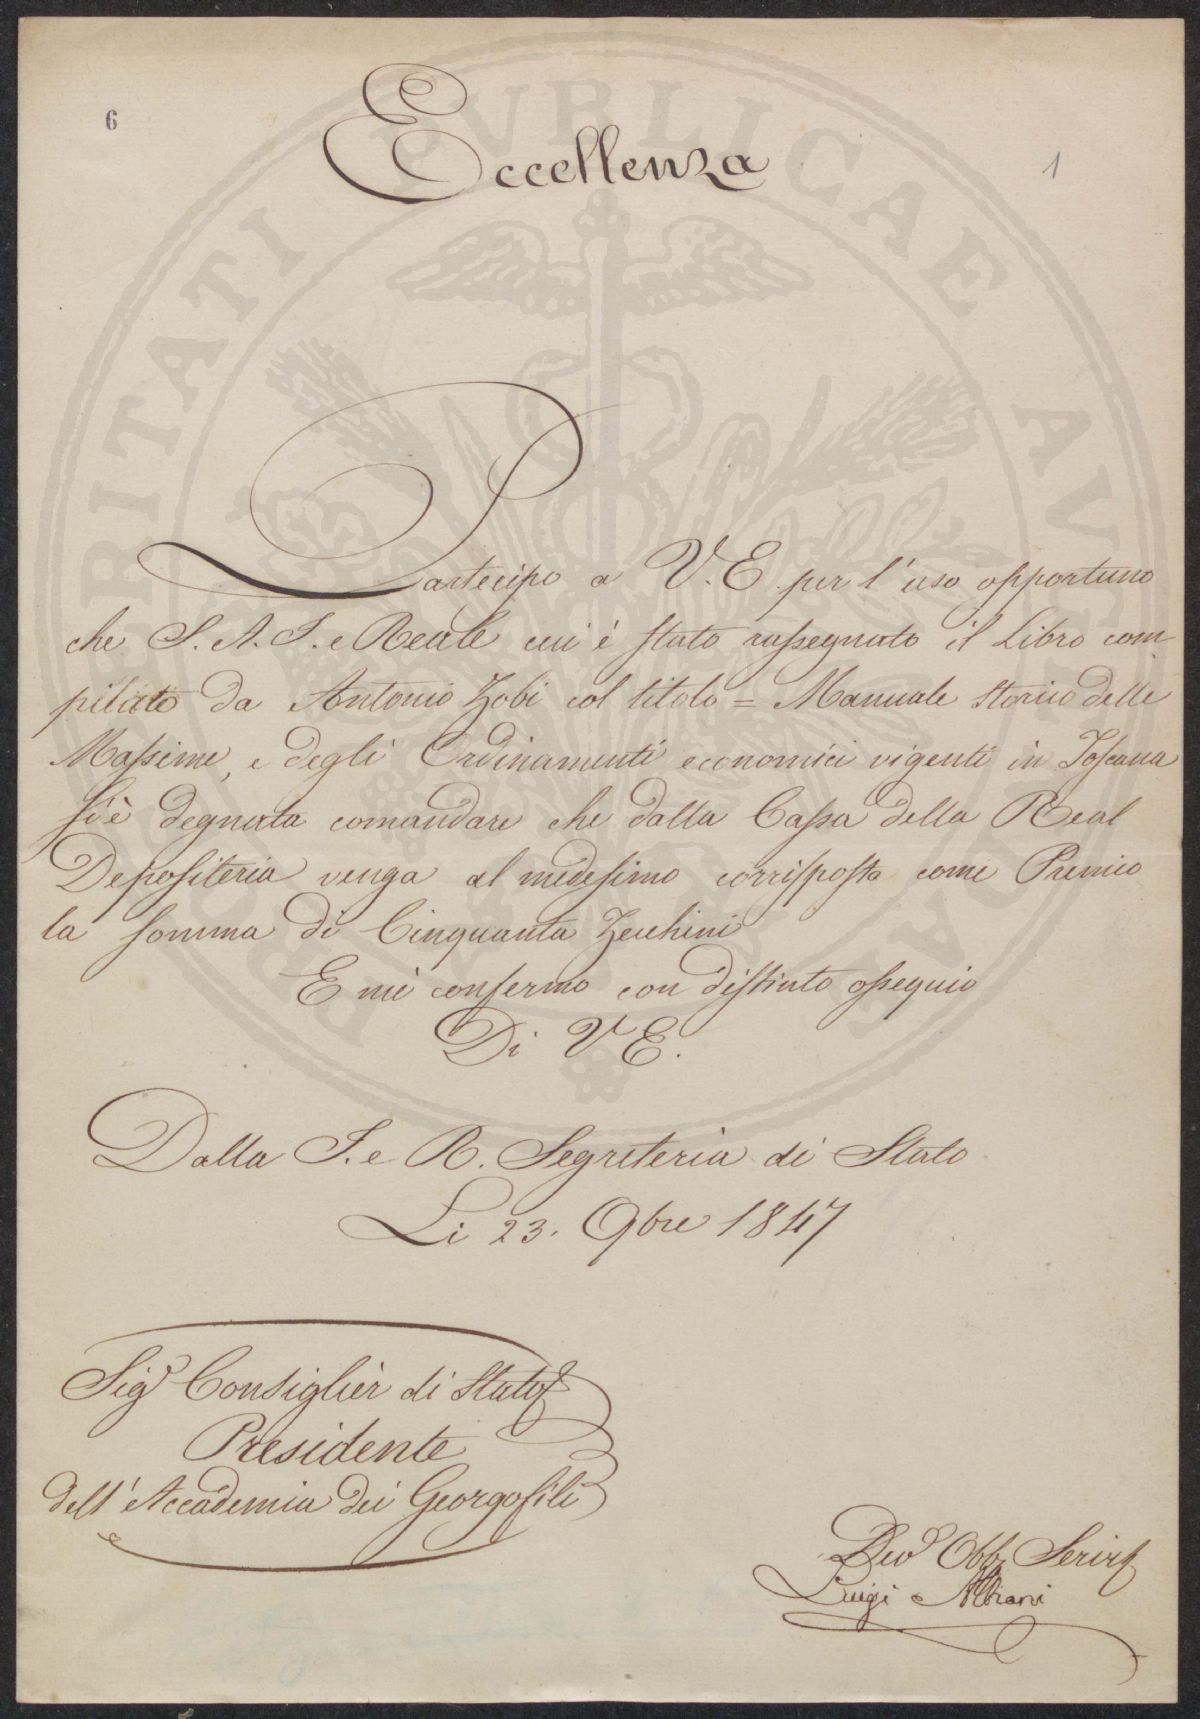 6
1
Eccellenza
Partecipo a V.E. per l'uso opportuno
che S. A. I. e Reale cui è stato rassegnato il Libro com-
pilato da Antonio Zobi col titolo = Manuale storico delle
Massime, e degli Ordinamenti economici vigenti in Toscana
si è degnata comandare che dalla Cassa della Real
Depositeria venga al medesimo corrisposta come Premio
la somma di Cinquanta Zecchini
E mi confermo con distinto ossequio
Di V E.
Dalla I. e R. Segreteria di Stato
Li 23. 9bre 1847
Sigr Consiglier di Stato
Presidente
dell'Accademia dei Georgofili
Devo Obb Servit
Luigi Albiani
PROSPERITATI PVBLICAE AVGENDAE